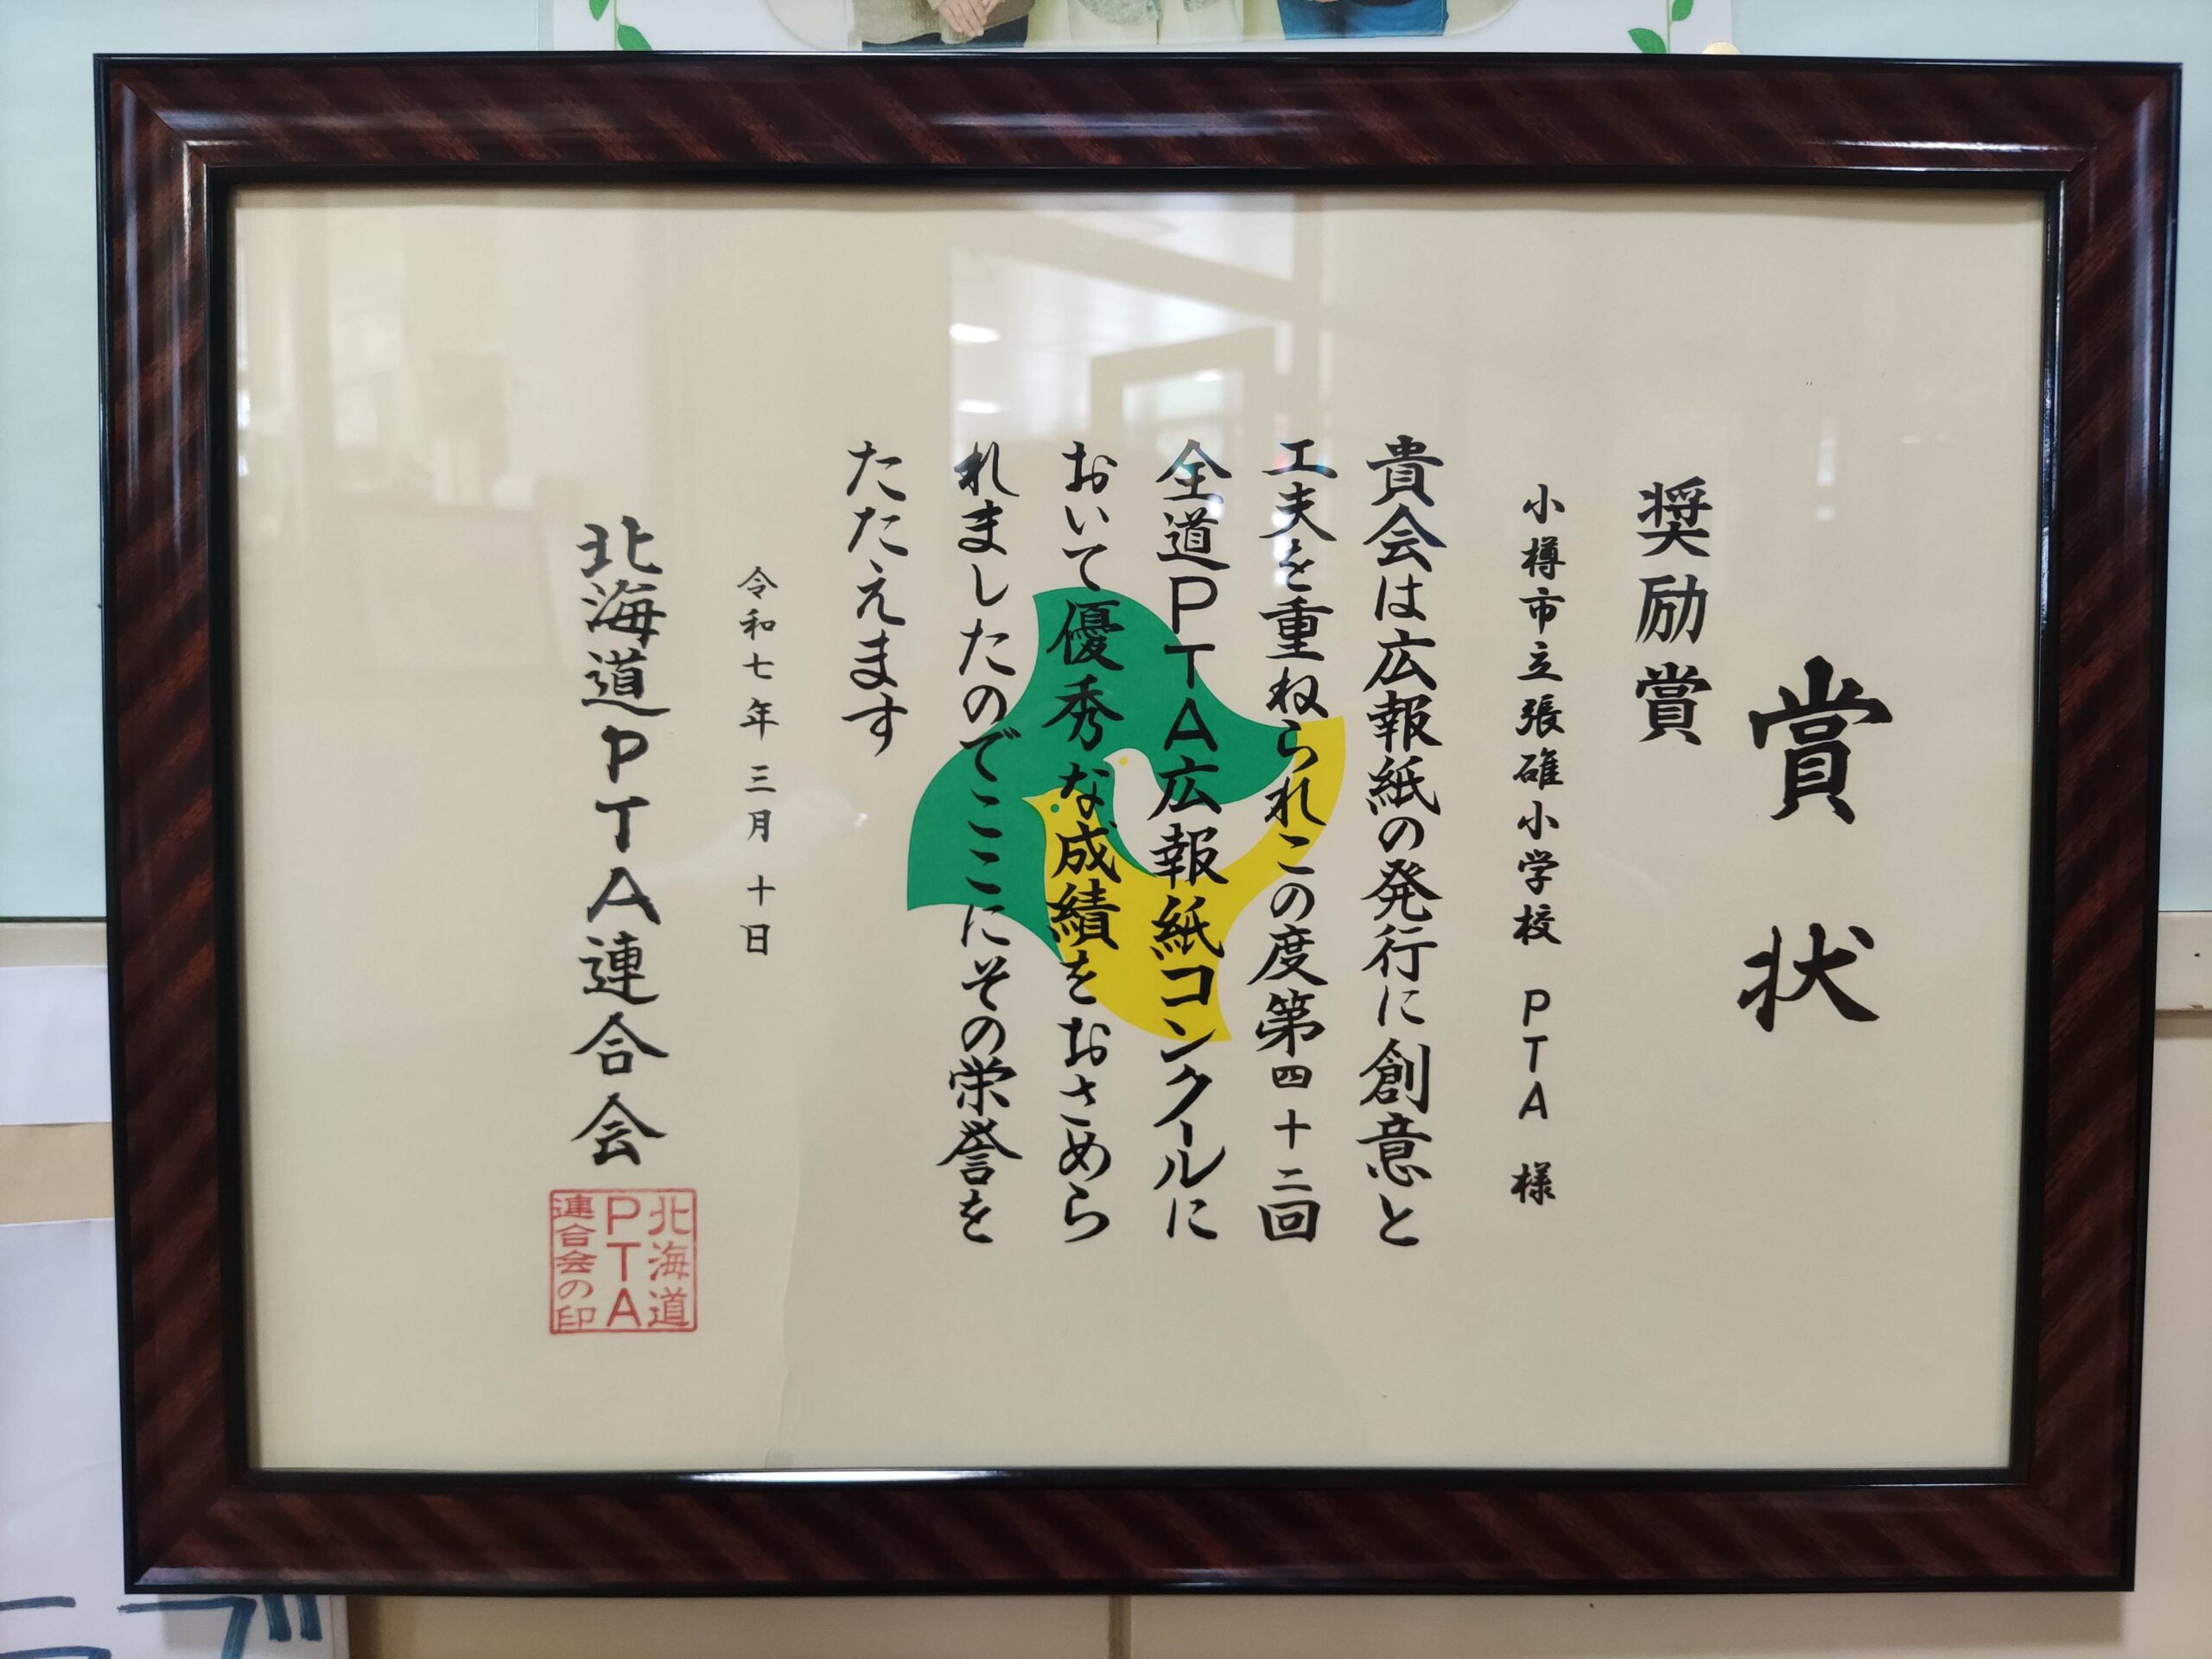 賞状
奨励賞
小樽市立張碓小学校 PTA 様
貴会は広報紙の発行に創意と
工夫を重ねられこの度第四十二回
全道PTA広報紙コンクールに
おいて優秀な成績をおさめら
れましたのでここにその栄誉を
たたえます
令和七年 三月 十日
北海道PTA連合会
北海道
PTA
連合会の印